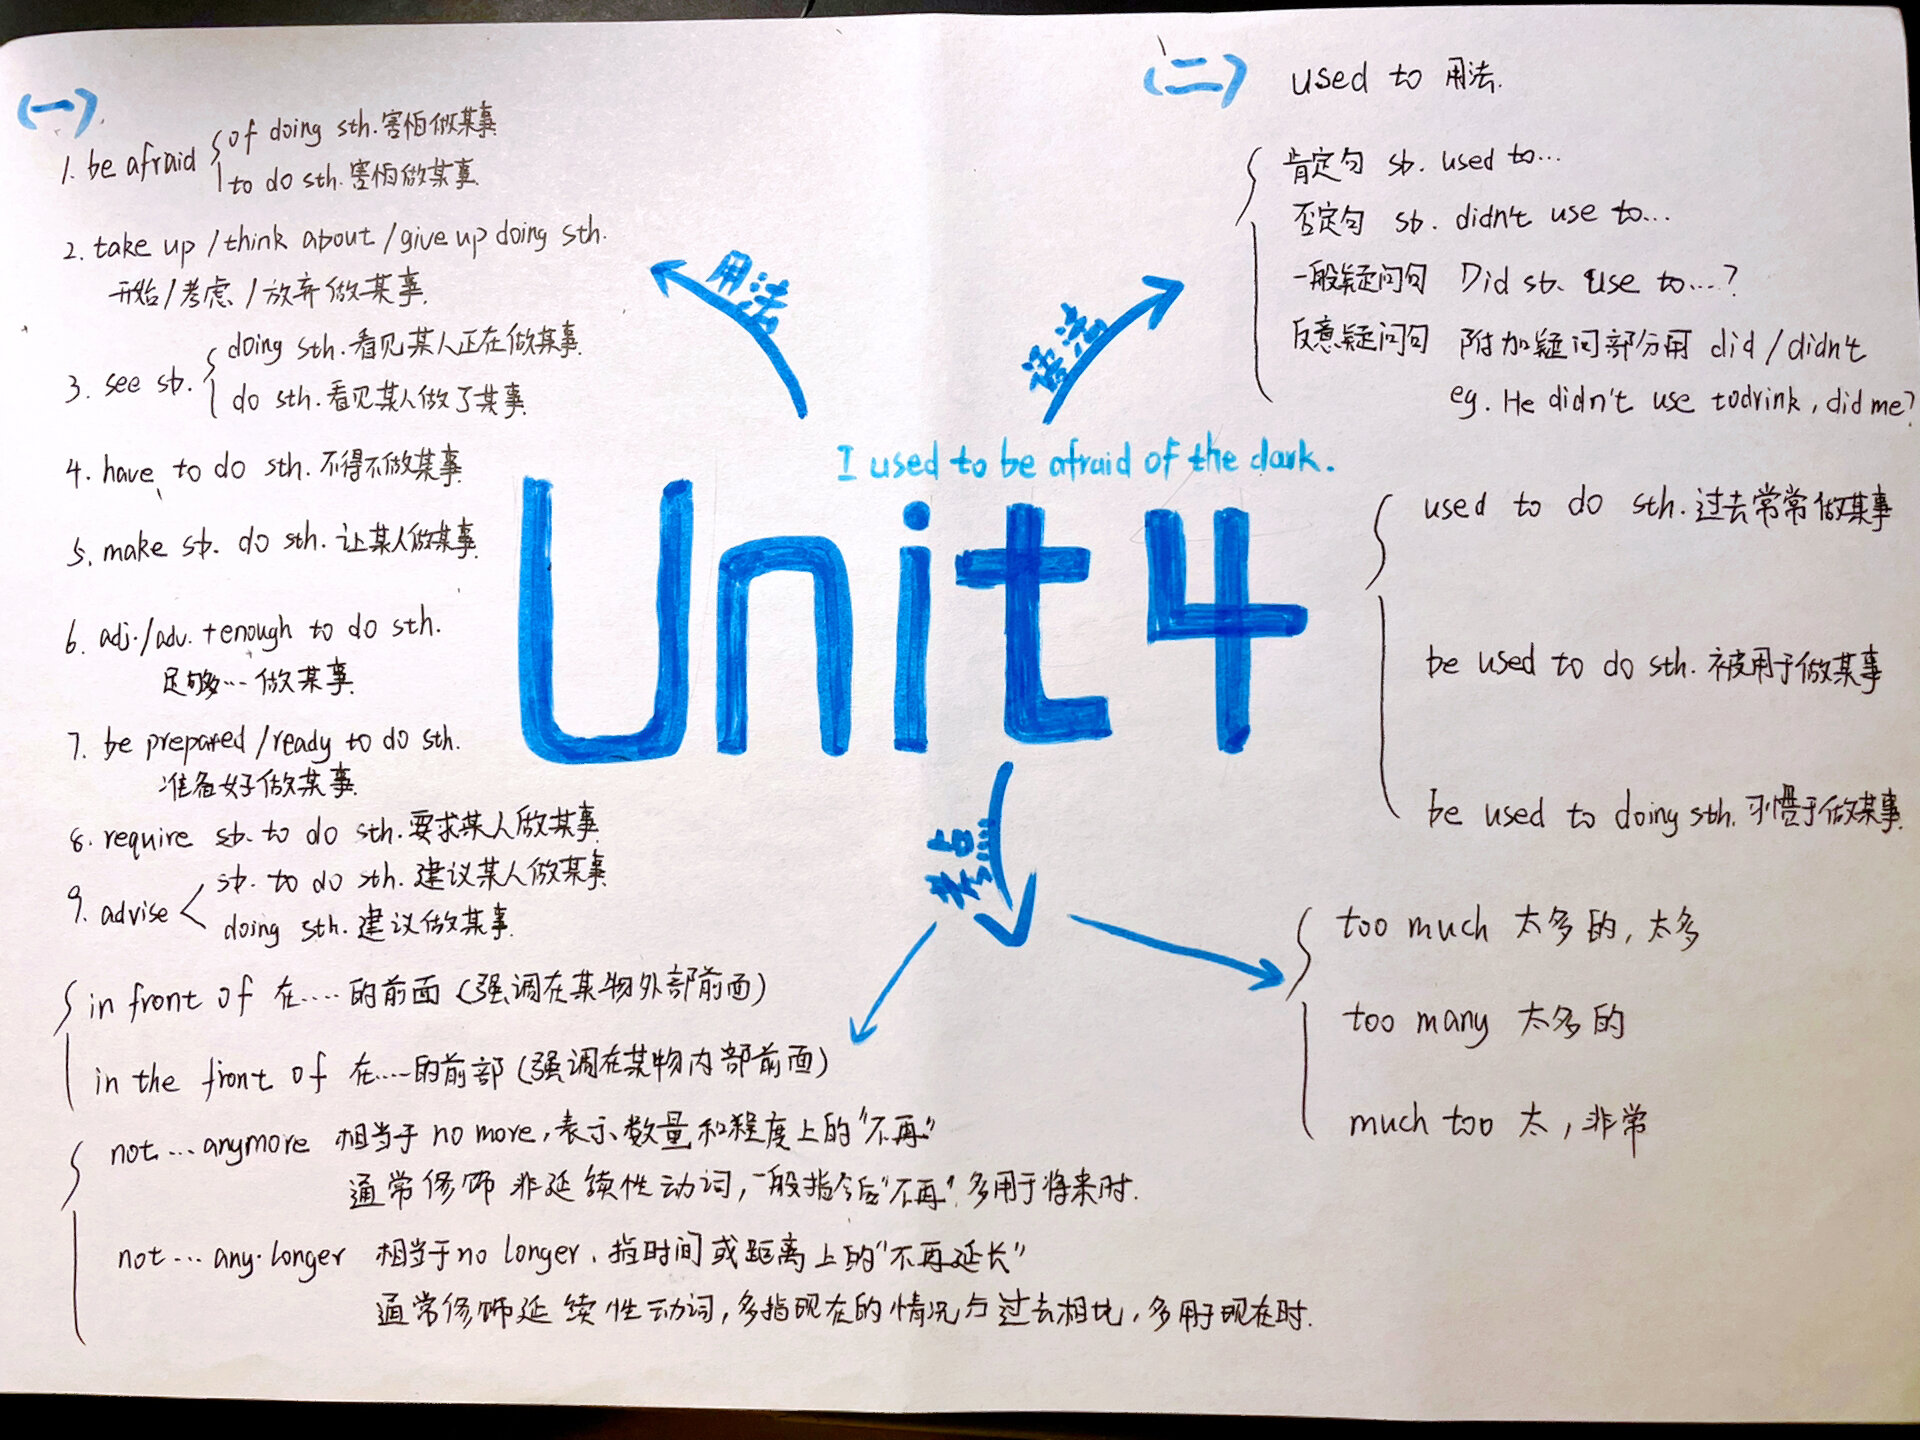 (一)
1. be afraid
of doing sth. 害怕做某事
to do sth. 害怕做某事
2. take up / think about / give up doing sth.
开始 / 考虑 / 放弃做某事.
3. see sb.
doing sth. 看见某人正在做某事.
do sth. 看见某人做了某事.
4. have to do sth. 不得不做某事
5. make sb. do sth. 让某人做某事.
6. adj./adv. + enough to do sth.
足够… 做某事.
7. be prepared / ready to do sth.
准备好做某事.
8. require sb. to do sth. 要求某人做某事.
9. advise
sb. to do sth. 建议某人做某事.
doing sth. 建议做某事.
用法
语法
I used to be afraid of the dark.
Unit4
考点
(二) used to 用法.
肯定句 sb. used to…
否定句 sb. didn't use to…
一般疑问句 Did sb. use to…?
反意疑问句 附加疑问部分用 did / didn't
eg. He didn't use todrink, did me?
used to do sth. 过去常常做某事
be used to do sth. 被用于做某事
be used to doing sth. 习惯于做某事.
in front of 在…. 的前面 (强调在某物外部前面)
in the front of 在…. 的前部 (强调在某物内部前面)
not … anymore 相当于 no more, 表示数量和程度上的"不再"
通常修饰 非延续性动词, 一般指今后"不再". 多用于将来时.
not … any·longer 相当于 no longer. 指时间或距离上的"不再延长"
通常修饰延续性动词, 多指现在的情况与过去相比, 多用于现在时.
too much 太多的, 太多
too many 太多的
much too 太, 非常